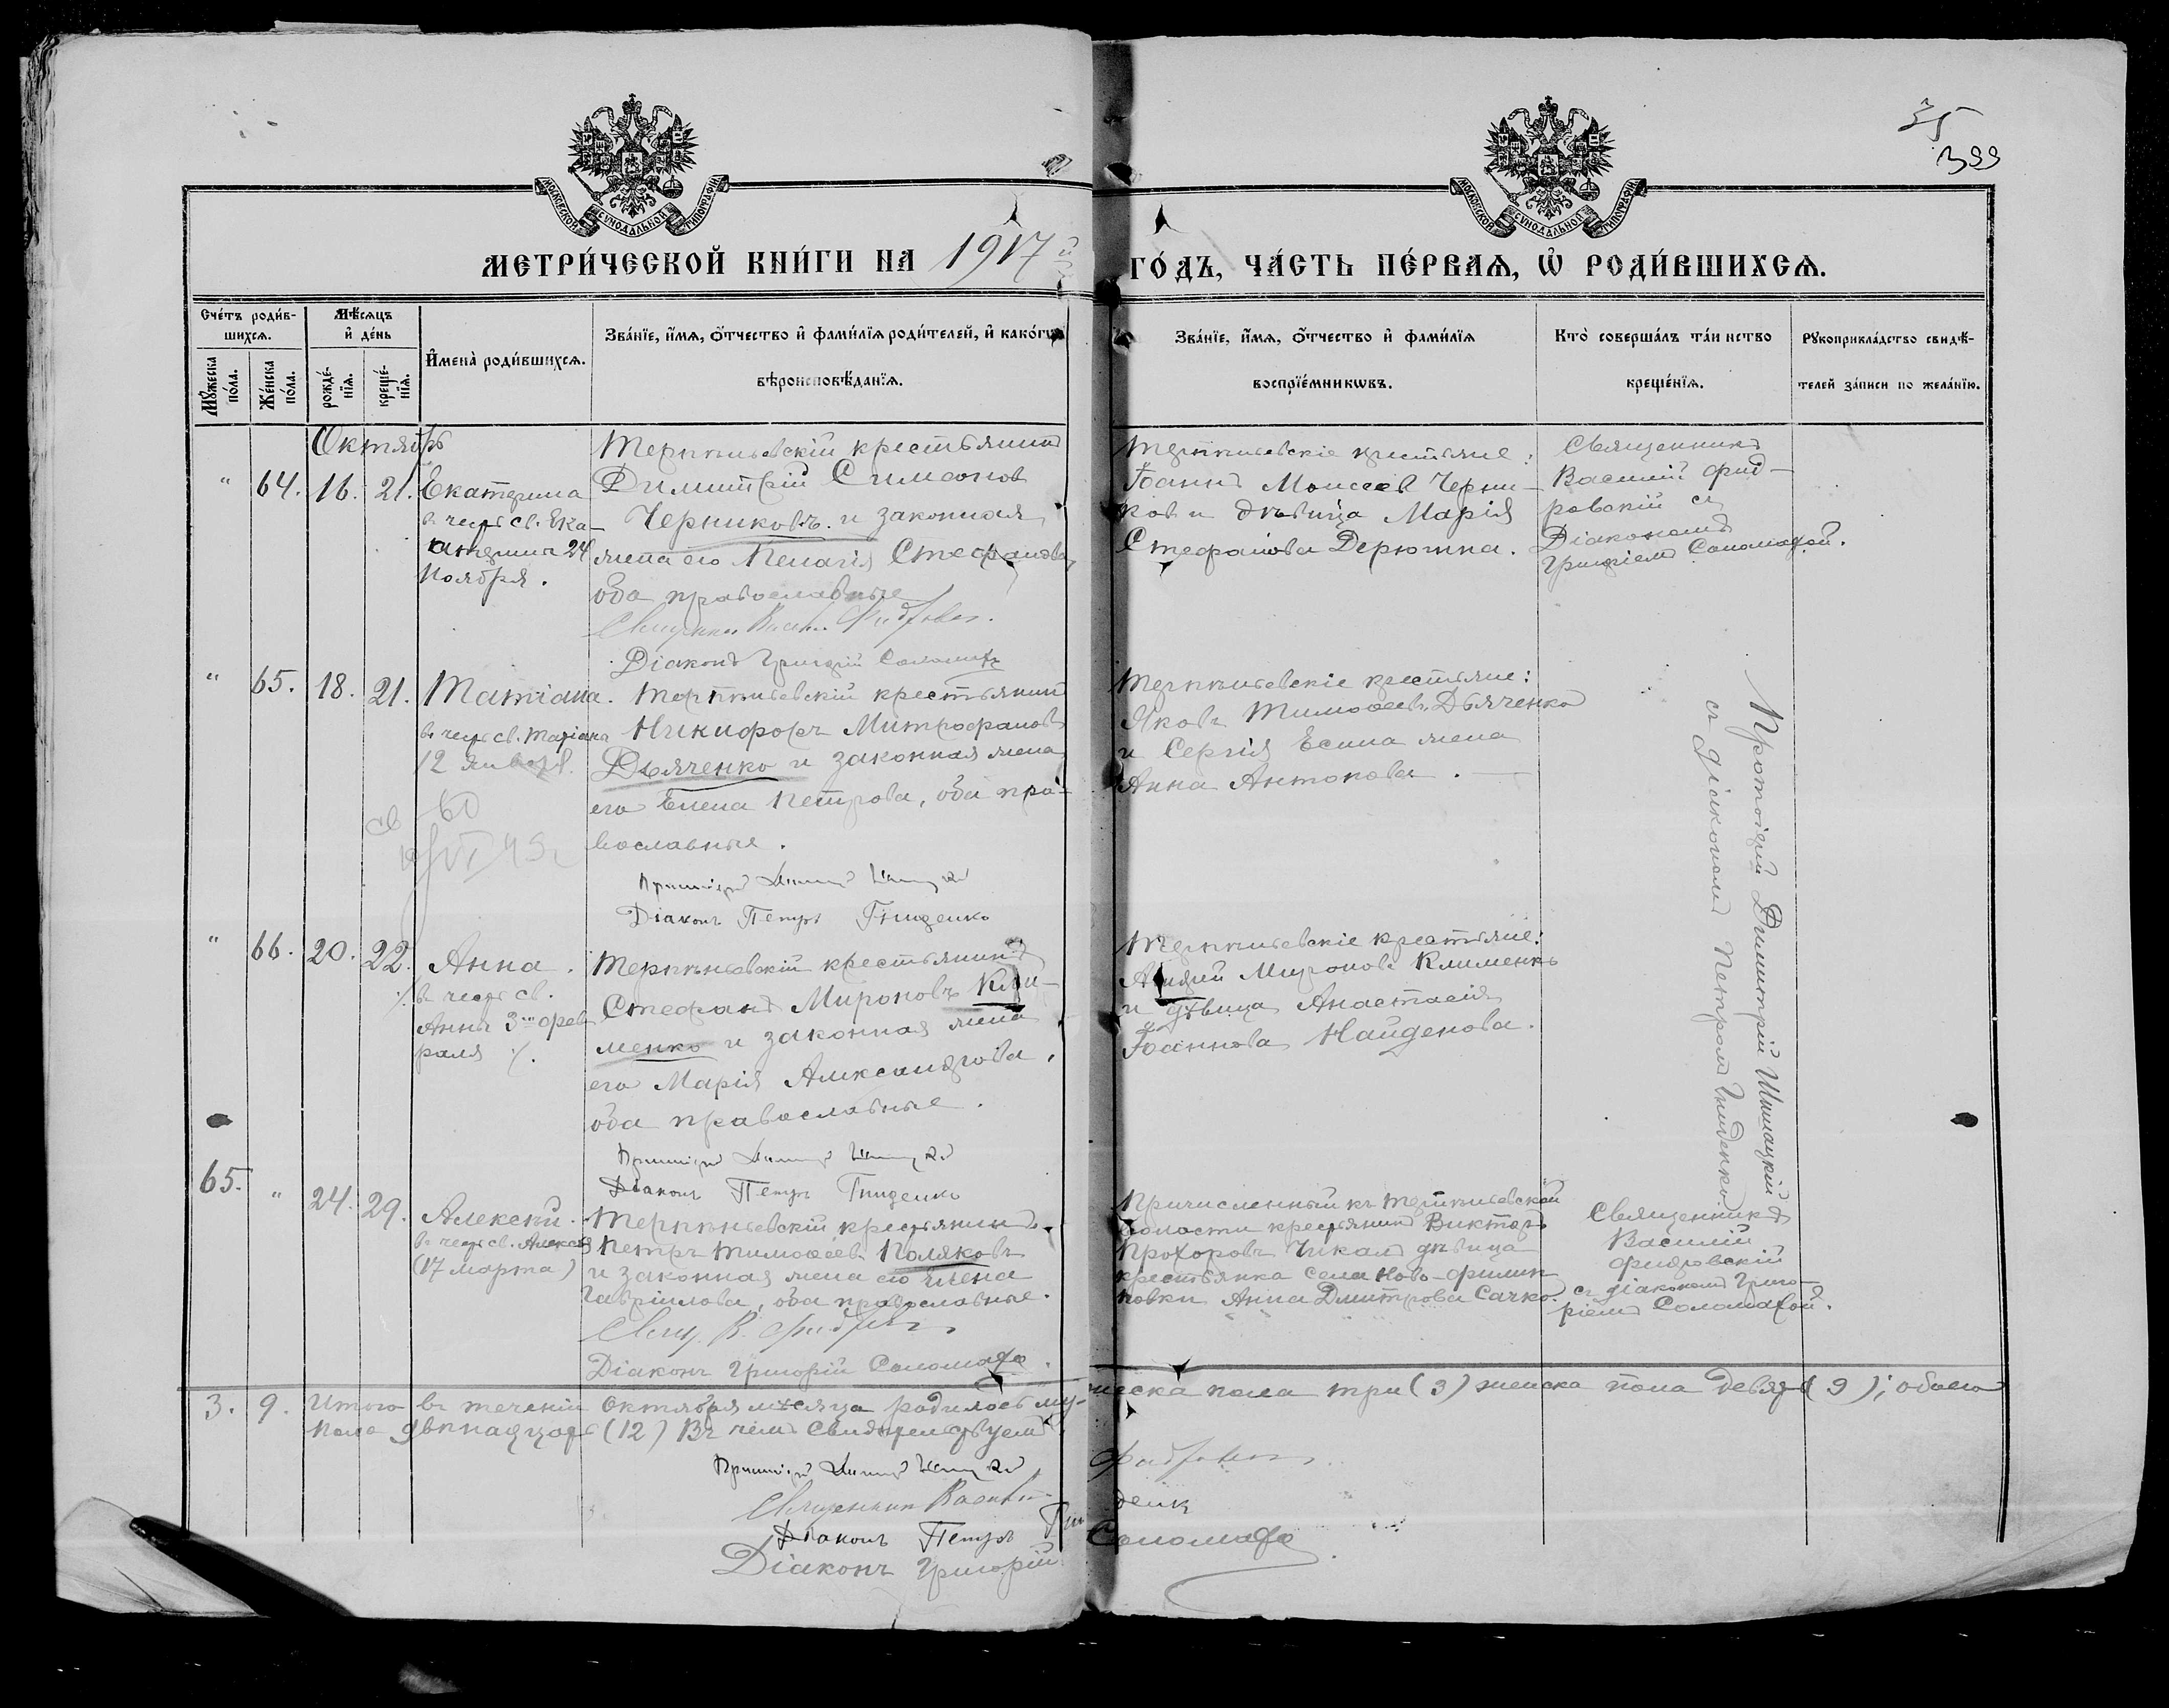 35
399
МОСКОВСКОЙ СѴНОДАЛЬНОЙ ТИПОГРАФІИ
МОСКОВСКОЙ СѴНОДАЛЬНОЙ ТИПОГРАФІИ
МЕТРИ́ЧЕСКОЙ КНИ́ГИ НА 1917 й
ГО́ДЪ, ЧА́СТЬ ПЕ́РВАѦ, Ѡ҆ РОДИ́ВШИХСѦ.
Сче́тъ роди́в-
шихсѧ.
Мꙋ́жеска по́ла.
Же́нска по́ла.
Мѣ́сѧцъ
и҆ де́нь
рожде́-
нїѧ.
креще́-
нїѧ.
И҆мена̀ роди́вшихсѧ.
Зва́нїе, и҆́мѧ, ѻ҆́тчество и҆ фами́лїѧ роди́телей, и҆ како́гѡ
вѣроисповѣ́данїѧ.
Зва́нїе, и҆́мѧ, ѻ҆́тчество и҆ фами́лїѧ
воспрїе́мникѡвъ.
Кто̀ соверша́лъ та́инство
креще́нїѧ.
Рꙋкоприкла́дство свидѣ́-
телей за́писи по жела́нїю.
Октябрь
" 64. 16. 21.
Екатерина
въ честь св. Ека-
терины 24
Ноября.
Терпѣньевскій крестьянинъ
Димитрій Симеонов
Черниковъ и законная
жена его Пелагія Стефанова,
оба православные
Діаконъ Григорій Соломаха
Терпѣньевскіе крестьяне:
Іоаннъ Моисеев Черни-
ков и дѣвица Марія
Стефанова Дерюгина.
Священникъ
Василій Фид-
ровскій съ
Діакономъ
Григоріемъ Соломахой.
" 65. 18. 21.
Татіана.
въ честь св. Татіана
12 января.
Терпѣньевскій крестьянинъ
Никифоръ Митрофановъ
Дьяченко и законная жена
его Елена Петрова, оба пра-
вославные.
Діаконъ Петръ Гниденко
Терпѣньевскіе крестьяне:
Яковъ Тимоѳеевъ Дьяченко
и Сергія Есипа жена
Анна Антонова.
Протоіерей Димитрій Шишацкій
съ діакономъ Петромъ Гниденко
" 66. 20. 22.
Анна.
въ честь св.
Анны 3го фев-
раля
Терпѣньевскій крестьянинъ
Стефанъ Мироновъ Кли-
менко и законная жена
его Марія Александрова,
оба православные.
Діаконъ Петръ Гниденко
Терпѣньевскіе крестьяне:
Андрей Миронов Клименко
и дѣвица Анастасія
Іоаннова Найденова.
65. " 24. 29.
Алексѣй.
въ честь св. Алексія
(17 марта)
Терпѣньевскій крестьянинъ
Петръ Тимоѳеев Поляковъ
и законная жена его Елена
Гавріилова, оба православные.
Діаконъ Григорій Соломаха.
Причисленный къ Терпѣньевской
волости крестьянинъ Викторъ
Прохоровъ Чикалъ дѣвица
крестьянка села Ново-Филип-
повки Анна Дмитрова Сачко.
Священникъ
Василій
Фидровскій
съ діакономъ Григо-
ріемъ Соломахой.
3. 9. Итого въ теченіи Октября мѣсяца родилось му-
жеска пола три (3) женска пола девять (9); обоего
пола двѣнадцать (12) Въ чемъ свидѣтельствуемъ
Священник Василій Фидровскій
Діаконъ Петръ Гниденко
Діаконъ Григорій Соломаха